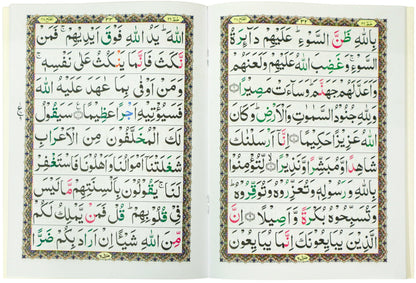 بِاللّٰهِ ظَنَّ السَّوْءِ ؕ عَلَيْهِمْ دَآئِرَةُ
السَّوْءِ ۚ وَ غَضِبَ اللّٰهُ عَلَيْهِمْ وَلَعَنَهُمْ
وَاَعَدَّ لَهُمْ جَهَنَّمَ ؕ وَسَآءَتْ مَصِيْرًا
وَ لِلّٰهِ جُنُوْدُ السَّمٰوٰتِ وَالْاَرْضِ ؕ وَكَانَ
اللّٰهُ عَزِيْزًا حَكِيْمًا اِنَّآ اَرْسَلْنٰكَ
شَاهِدًا وَّمُبَشِّرًا وَّنَذِيْرًا لِّتُؤْمِنُوْا
بِاللّٰهِ وَ رَسُوْلِهٖ وَتُعَزِّرُوْهُ وَتُوَقِّرُوْهُ ؕ
وَتُسَبِّحُوْهُ بُكْرَةً وَّ اَصِيْلًا اِنَّ
الَّذِيْنَ يُبَايِعُوْنَكَ اِنَّمَا يُبَايِعُوْنَ
اللّٰهَ ؕ يَدُ اللّٰهِ فَوْقَ اَيْدِيْهِمْ ۚ فَمَنْ
نَّكَثَ فَاِنَّمَا يَنْكُثُ عَلٰى نَفْسِهٖ ۚ
وَمَنْ اَوْفٰى بِمَا عٰهَدَ عَلَيْهُ اللّٰهَ
فَسَيُؤْتِيْهِ اَجْرًا عَظِيْمًا سَيَقُوْلُ
لَكَ الْمُخَلَّفُوْنَ مِنَ الْاَعْرَابِ
شَغَلَتْنَآ اَمْوَالُنَا وَاَهْلُوْنَا فَاسْتَغْفِرْ
لَنَا ۚ يَقُوْلُوْنَ بِاَلْسِنَتِهِمْ مَّا لَيْسَ
فِيْ قُلُوْبِهِمْ ؕ قُلْ فَمَنْ يَّمْلِكُ لَكُمْ
مِّنَ اللّٰهِ شَيْئًا اِنْ اَرَادَ بِكُمْ ضَرًّا